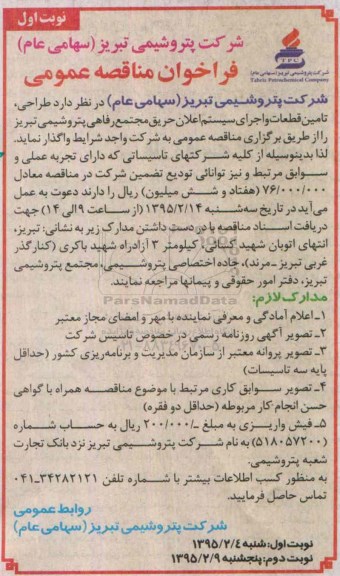 نوبت اول
شرکت پتروشیمی تبریز (سهامی عام)
TPU
شرکت پتروشیمی تبریز (سهامی عام)
Tabriz Petrochemical Company
فراخوان مناقصه عمومی
شرکت پتروشیمی تبریز (سهامی عام) در نظر دارد طراحی،
تامین قطعات و اجرای سیستم اعلان حریق مجتمع رفاهی پتروشیمی تبریز
را از طریق برگزاری مناقصه عمومی به شرکت واجد شرایط واگذار نماید.
لذا بدینوسیله از کلیه شرکتهای تاسیساتی که دارای تجربه عملی و
سوابق مرتبط و نیز توانائی تودیع تضمین شرکت در مناقصه معادل
۷۶/۰۰۰/۰۰۰ (هفتاد و شش میلیون) ریال را دارند دعوت به عمل
می‌آید در تاریخ سه‌شنبه ۱۳۹۵/۲/۱۴ (از ساعت ۹ الی ۱۴) جهت
دریافت اسناد مناقصه با در دست داشتن مدارک زیر به نشانی: تبریز،
انتهای اتوبان شهید کسائی، کیلومتر ۳ آزادراه شهید باکری (کنارگذر
غربی تبریز ـ مرند)، جاده اختصاصی پتروشیمی، مجتمع پتروشیمی
تبریز، دفتر امور حقوقی و پیمانها مراجعه نمایند.
ParsNamadData
مدارک لازم:
۱ـ اعلام آمادگی و معرفی نماینده با مهر و امضای مجاز معتبر
۲ـ تصویر آگهی روزنامه رسمی در خصوص تاسیس شرکت
۳ـ تصویر پروانه معتبر از سازمان مدیریت و برنامه‌ریزی کشور (حداقل
پایه سه تاسیسات)
۴ـ تصویر سوابق کاری مرتبط با موضوع مناقصه همراه با گواهی
حسن انجام کار مربوطه (حداقل دو فقره)
۵ـ فیش واریزی به مبلغ ـ/۲۰۰/۰۰۰ ریال به حساب شماره
(۵۱۸۰۵۷۲۰۰) به نام شرکت پتروشیمی تبریز نزد بانک تجارت
شعبه پتروشیمی.
به منظور کسب اطلاعات بیشتر با شماره تلفن ۳۴۲۸۲۱۲۱-۰۴۱
تماس حاصل فرمایید.
روابط عمومی
شرکت پتروشیمی تبریز (سهامی عام)
نوبت اول: شنبه ۱۳۹۵/۲/۴
نوبت دوم: پنجشنبه ۱۳۹۵/۲/۹